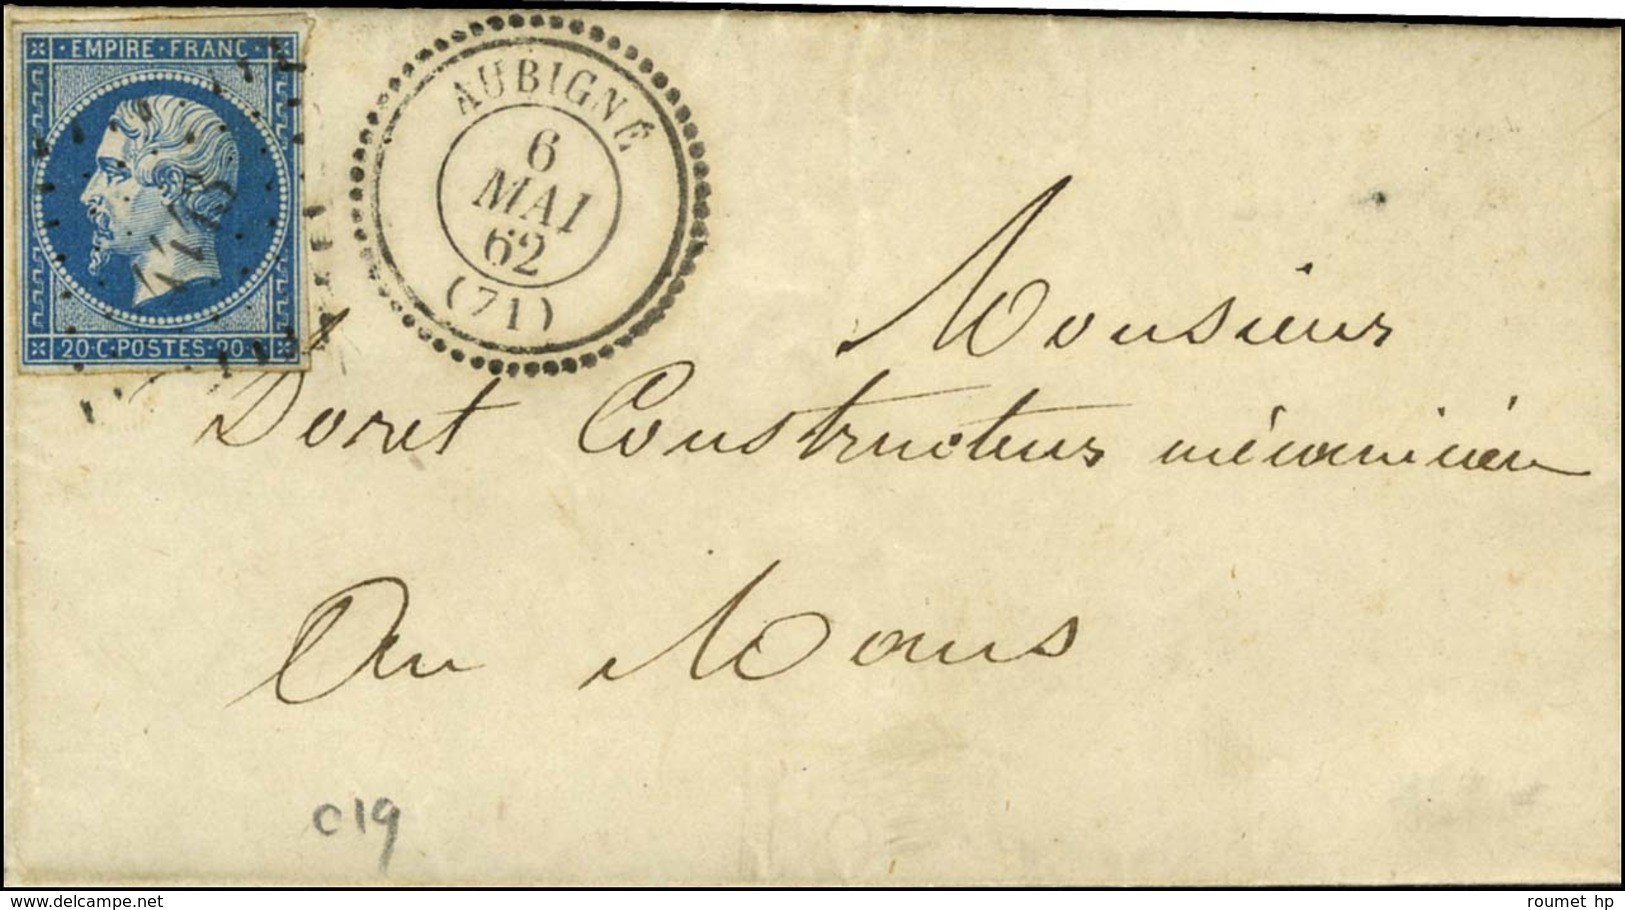 EMPIRE · FRANC
20 · C · POSTES · 20 · C
AUBIGNÉ
6
MAI
62
(71)
Monsieur
Doret Constructeur mécanicien
Au Mans
C19
roumet hp